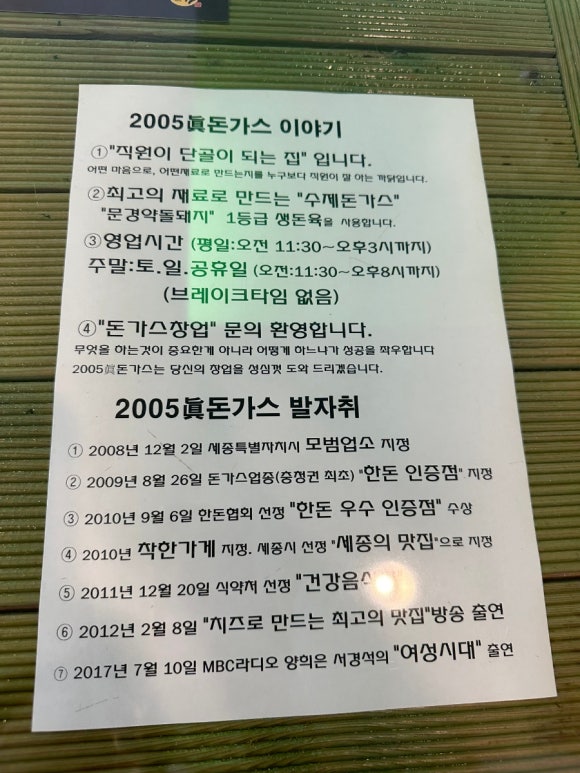 2005眞돈가스 이야기
①"직원이 단골이 되는 집" 입니다.
어떤 마음으로, 어떤재료로 만드는지를 누구보다 직원이 잘 아는 까닭입니다.
②최고의 재료로 만드는 "수제돈가스"
"문경약돌돼지" 1등급 생돈육을 사용합니다.
③영업시간 (평일:오전 11:30~오후3시까지)
주말:토.일.공휴일 (오전:11:30~오후8시까지)
(브레이크타임 없음)
④"돈가스창업" 문의 환영합니다.
무엇을 하는것이 중요한게 아니라 어떻게 하느냐가 성공을 좌우합니다
2005眞돈가스는 당신의 창업을 성심껏 도와 드리겠습니다.
2005眞돈가스 발자취
① 2008년 12월 2일 세종특별자치시 모범업소 지정
② 2009년 8월 26일 돈가스업종(충청권 최초) "한돈 인증점" 지정
③ 2010년 9월 6일 한돈협회 선정 "한돈 우수 인증점" 수상
④ 2010년 착한가게 지정. 세종시 선정 "세종의 맛집"으로 지정
⑤ 2011년 12월 20일 식약처 선정 "건강음식
⑥ 2012년 2월 8일 "치즈로 만드는 최고의 맛집"방송 출연
⑦ 2017년 7월 10일 MBC라디오 양희은 서경석의 "여성시대" 출연